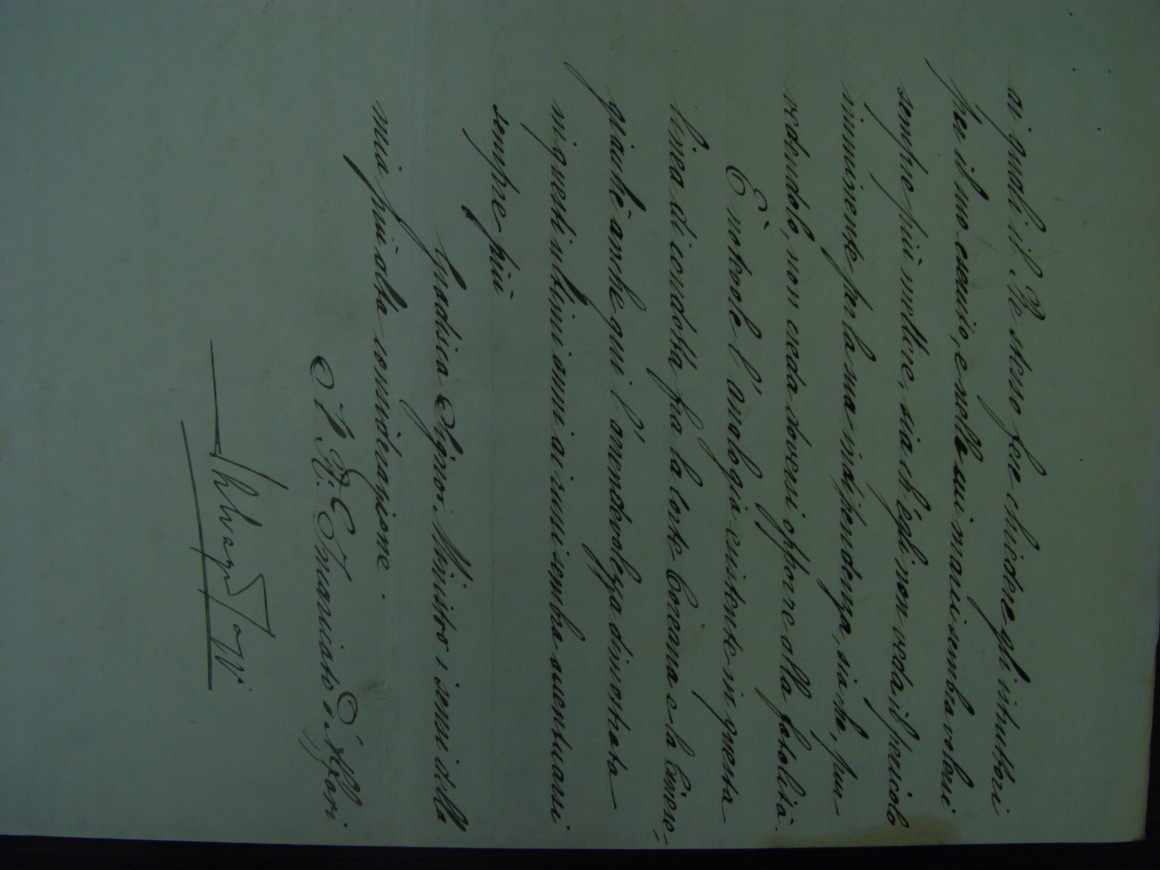 ai quali il Re stesso fece chiedere gli istruttori
per il suo esercito, e nelle cui mani sembra volersi
sempre più mettere, sia ch'egli non veda il pericolo
imminente per la sua indipendenza, sia che, pur
vedendolo, non creda doversi opporre alla fatalità.
È notevole l'analogia esistente in questa
linea di condotta fra la Corte Coreana e la Cinese,
giacchè anche qui l'arrendevolezza dimostrata
in questi ultimi anni ai russi sembra accentuarsi
sempre più
Gradisca Signor Ministro i sensi della
mia più alta considerazione.
Il R. Incaricato d'Affari